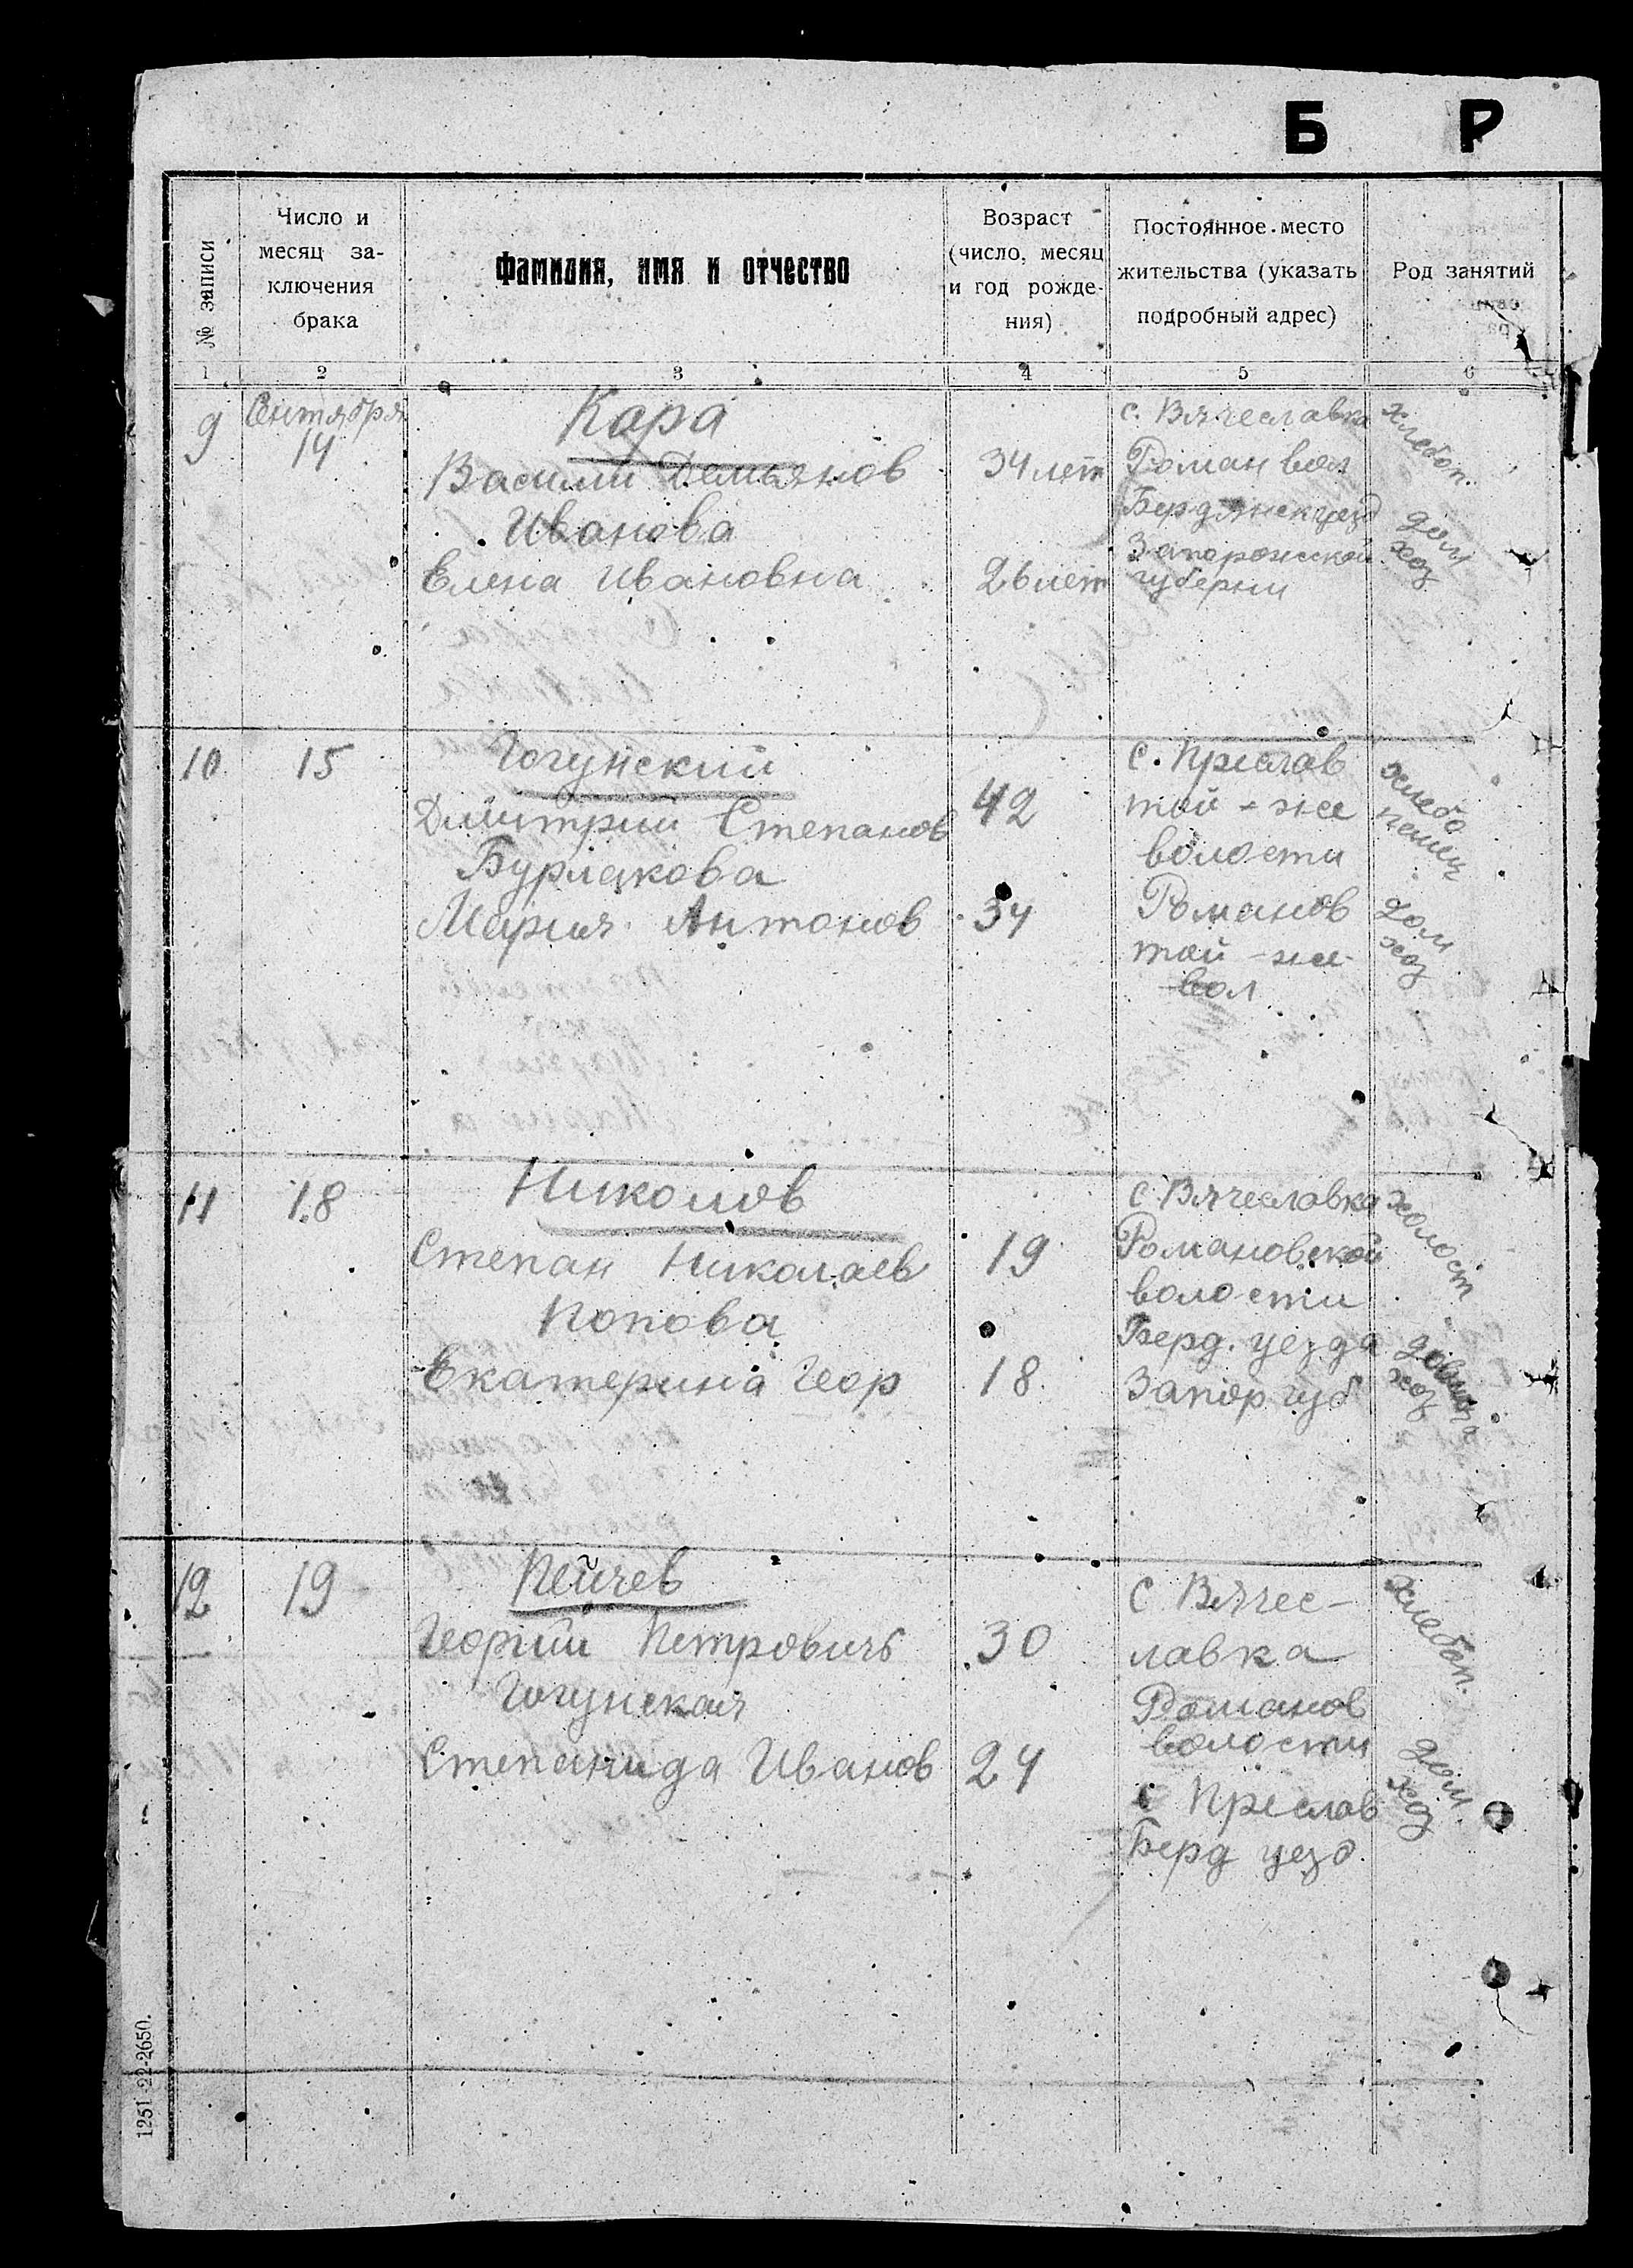 Б Р
№ записи
Число и
месяц за-
ключения
брака
Фамилия, имя и отчество
Возраст
(число, месяц
и год рожде-
ния)
Постоянное место
жительства (указать
подробный адрес)
Род занятий
1 2 3 4 5 6
9
Сентября
14
Кара
Василий Демьянов
Иванова
Елена Ивановна
34 лет
26 лет
с. Вячеславка
Роман вол
Бердянск уезд
Запорожской
губернии
хлебоп.
дом
хоз
10
15
Гогунский
Дмитрий Степанов
Бурлакова
Мария Антонов
42
34
с. Преслав
той - же
волости
Романов
той - же
вол
хлебо
пашец
дом
хоз
11
18
Николов
Степан Николаев
Попова
Екатерина Геор
19
18
с. Вячеславка
Романовской
волости
Берд. уезда
Запор губ
холост
девица
хоз
12
19
Пейчев
Георгий Петровичъ
Гогунская
Степанида Иванов
30
24
с Вячес-
лавка
Романов
волости
с Преслав
Берд уезд
хлебоп.
дом.
хоз
1251 22-2650.